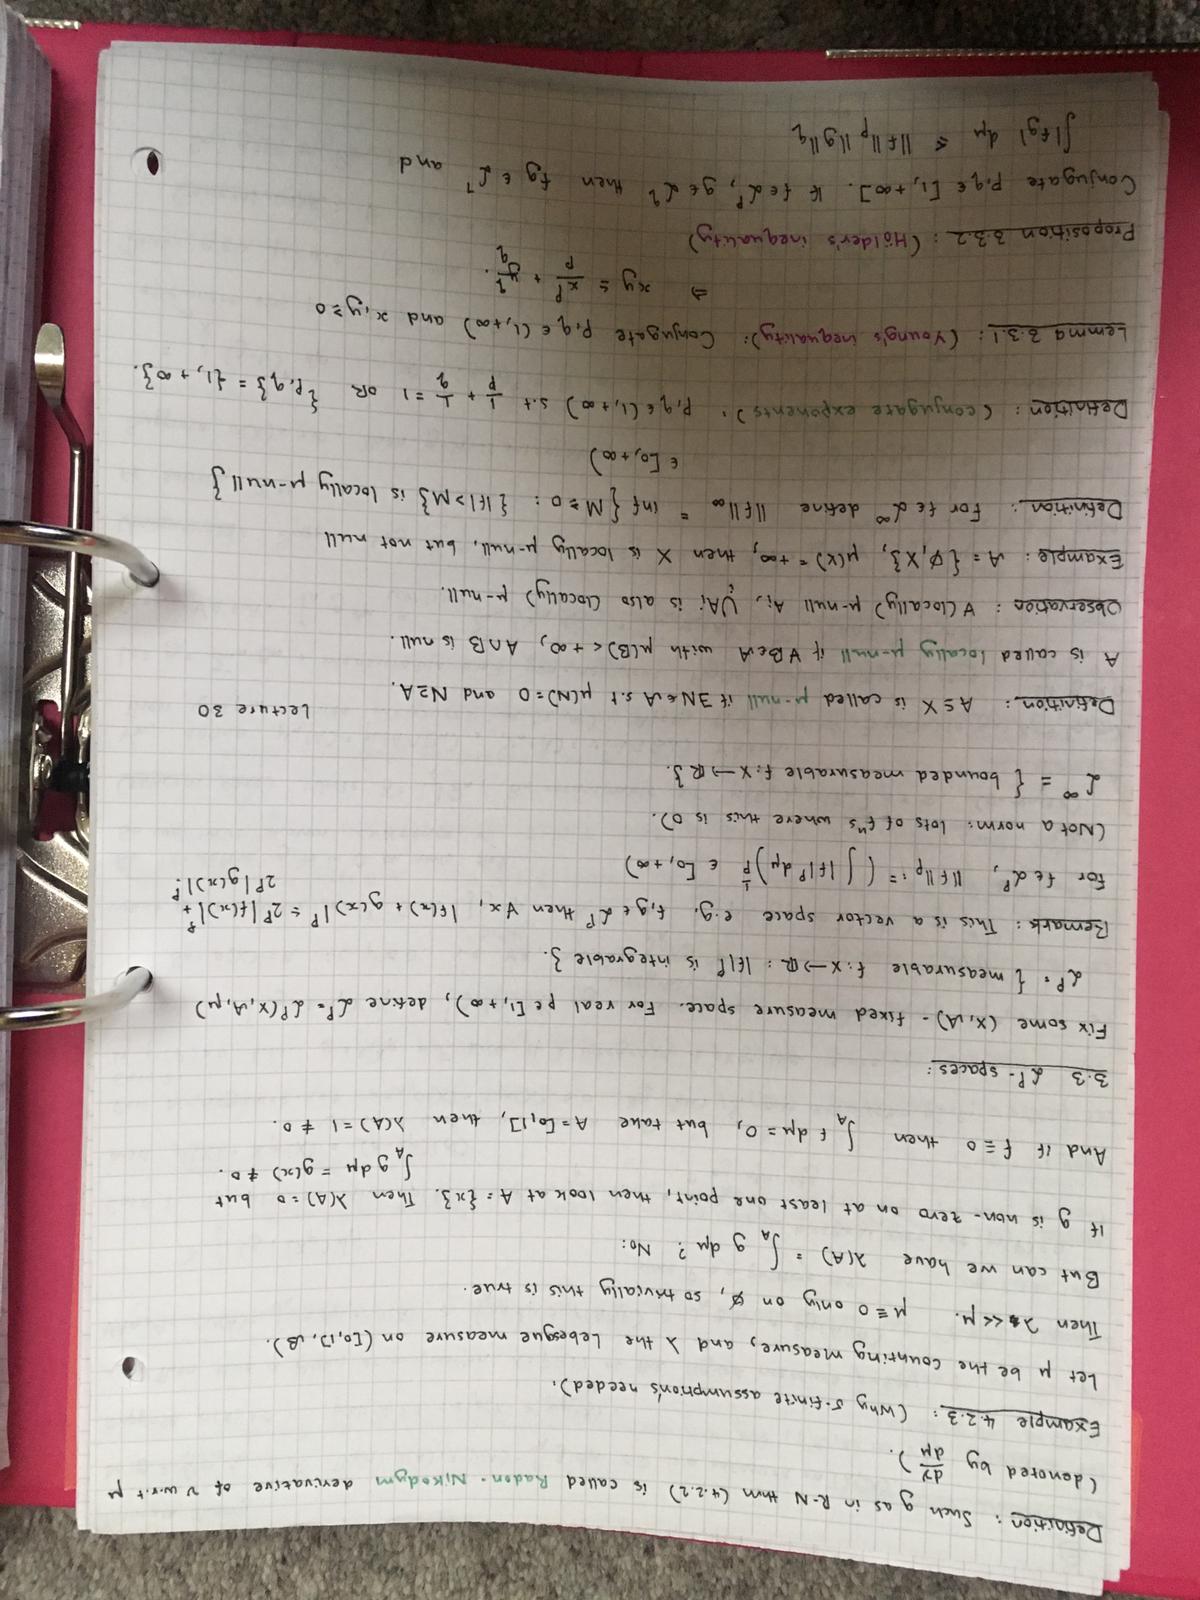 Definition: Such g as in R-N thm (4.2.2) is called Radon-Nikodym derivative of ν w.r.t μ
(denoted by dν/dμ).
Example 4.2.3: (Why σ-finite assumptions needed).
Let μ be the counting measure, and λ the Lebesgue measure on ([0,1], B).
Then λ << μ. μ ≡ 0 only on ∅, so trivially this is true.
But can we have λ(A) = ∫_A g dμ? No:
If g is non-zero on at least one point, then look at A = {x}. Then λ(A) = 0 but
∫_A g dμ = g(x) ≠ 0.
And if f ≡ 0 then ∫_A f dμ = 0, but take A = [0,1], then λ(A) = 1 ≠ 0.
3.3 ℒᵖ-spaces:
Fix some (X, A) - fixed measure space. For real p ∈ [1, +∞), define ℒᵖ = ℒᵖ(X, A, μ)
ℒᵖ = { measurable f: X → ℝ : |f|ᵖ is integrable }.
Remark: This is a vector space e.g. f, g ∈ ℒᵖ then ∀x, |f(x) + g(x)|ᵖ ≤ 2ᵖ|f(x)|ᵖ +
2ᵖ|g(x)|ᵖ!
For f ∈ ℒᵖ, ||f||_p := (∫|f|ᵖ dμ)^{1/p} ∈ [0, +∞)
(Not a norm: lots of fⁿs where this is 0).
ℒ^∞ = { bounded measurable f: X → ℝ }.
Lecture 30
Definition: A ⊆ X is called μ-null if ∃N ∈ A s.t μ(N) = 0 and N ⊇ A.
A is called locally μ-null if ∀B ∈ A with μ(B) < +∞, A ∩ B is null.
Observation: ∀ (locally) μ-null A_i, ∪_i A_i is also (locally) μ-null.
Example: A = {∅, X}, μ(X) = +∞, then X is locally μ-null, but not null
Definition: For f ∈ ℒ^∞ define ||f||_∞ = inf { M ≥ 0 : {|f| > M} is locally μ-null }
∈ [0, +∞)
Definition: (conjugate exponents): p, q ∈ (1, +∞) s.t 1/p + 1/q = 1 OR {p, q} = {1, +∞}.
Lemma 3.3.1: (Young's inequality): Conjugate p, q ∈ (1, +∞) and x, y ≥ 0
⇒ xy ≤ xᵖ/p + y^q/q.
Proposition 3.3.2: (Hölder's inequality)
Conjugate p, q ∈ [1, +∞]. If f ∈ ℒᵖ, g ∈ ℒ^q then fg ∈ ℒ¹ and
∫|fg| dμ ≤ ||f||_p ||g||_q